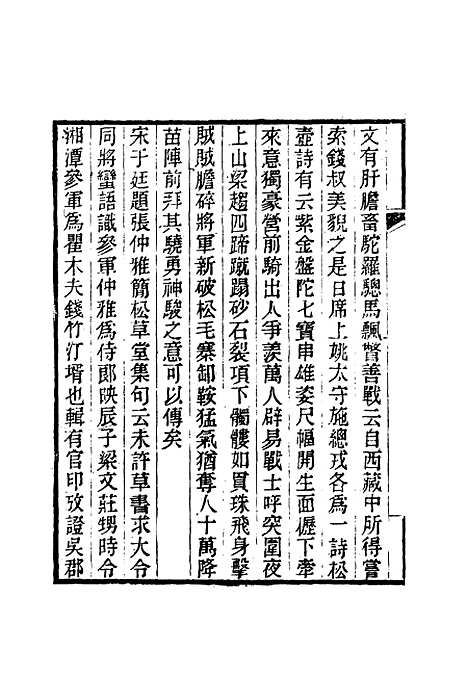 文有肝膽畜駝羅驄馬飄瞥善戰云自西藏中所得嘗
索錢叔美貌之是日席上姚太守施總戎各爲一詩松
壺詩有云紫金盤陀七寶車雄姿尺幅開生面櫪下牽
來意獨豪營前騎出人爭羨萬人辟易戰士呼突圍夜
上山梁趫四蹄蹴蹋砂石裂項下髑髏如貫珠飛身擊
賊賊膽碎將軍新破松毛寨卸鞍猛氣猶奪人十萬降
苗陣前拜其驍勇神駿之意可以傳矣
宋于廷題張仲雅簡松草堂集句云未許草書求大令
同將蠻語議參軍仲雅爲侍郎映辰子梁文莊甥時令
湘潭參軍爲瞿木夫錢竹汀壻也輯有官印攷證吳郡